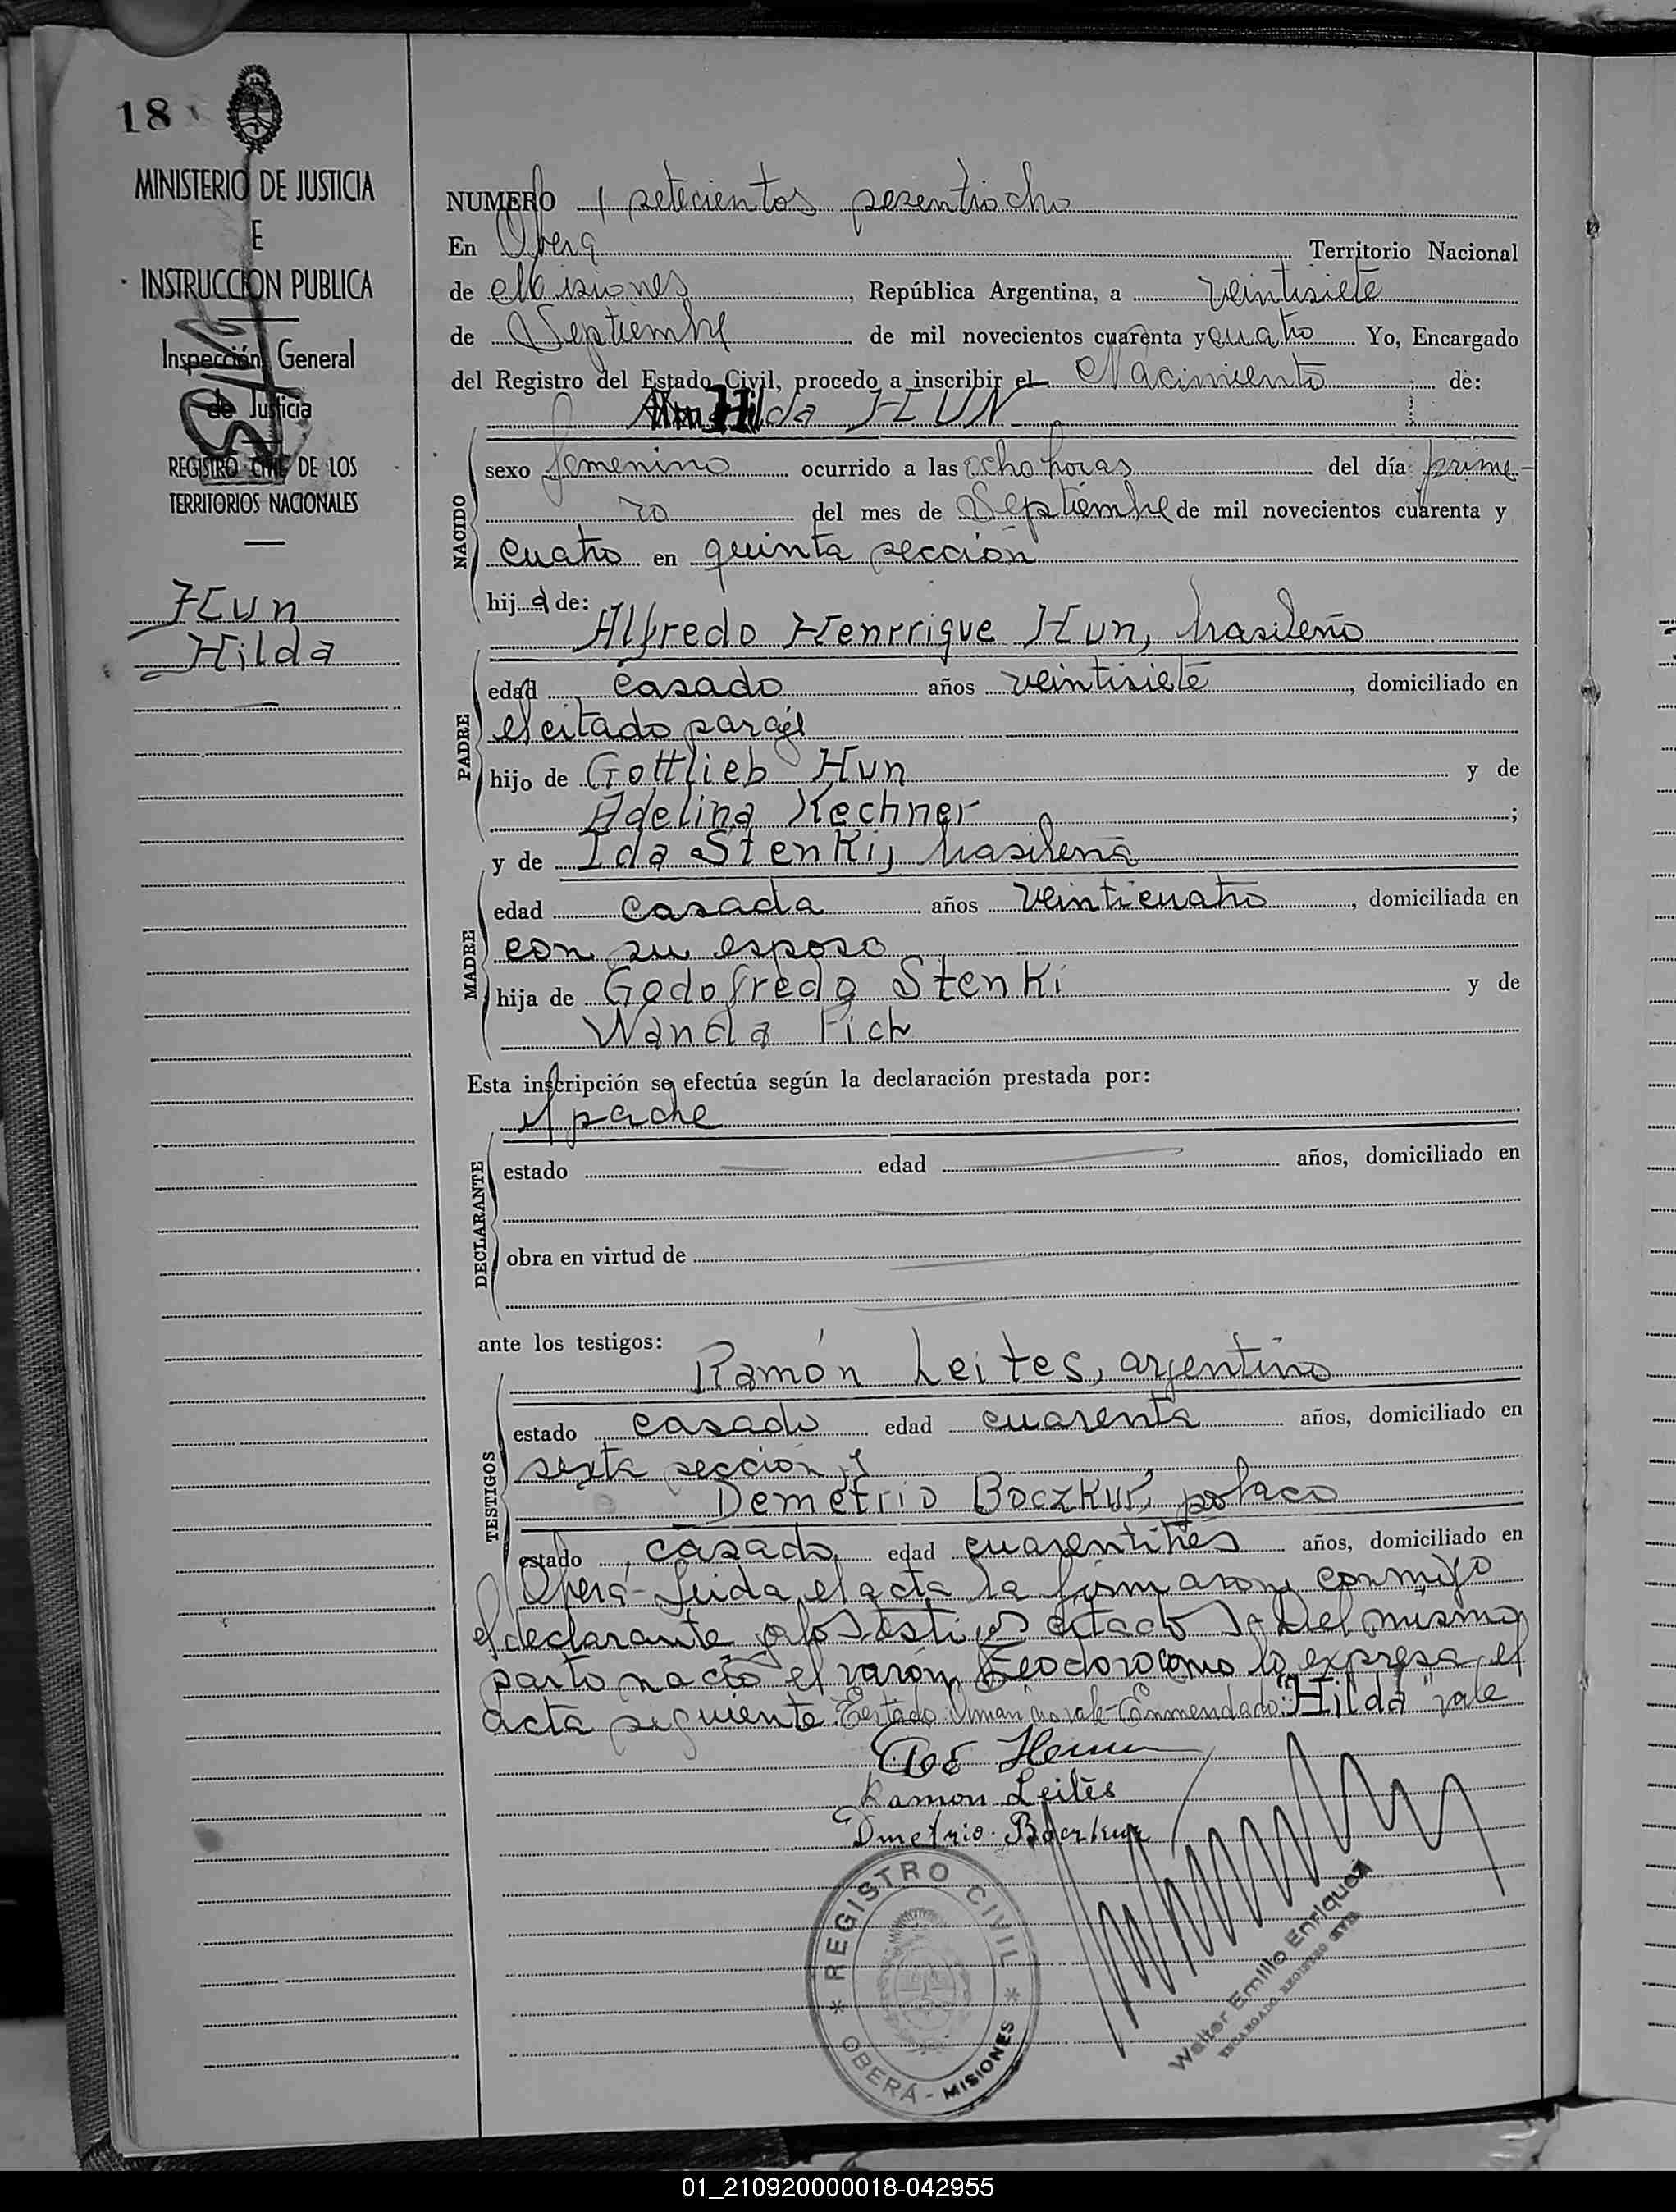 18
MINISTERIO DE JUSTICIA
E
INSTRUCCION PUBLICA
Inspección General
de Justicia
REGISTRO CIVIL DE LOS
TERRITORIOS NACIONALES
Hun
Hilda
NUMERO setecientos sesentiocho
En Oberá Territorio Nacional
de Misiones, República Argentina, a veintisiete
de Septiembre de mil novecientos cuarenta y cuatro Yo, Encargado
del Registro del Estado Civil, procedo a inscribir el Nacimiento de:
Hilda HUN
NACIDO
sexo femenino ocurrido a las ocho horas del día prime-
ro del mes de Septiembre de mil novecientos cuarenta y
cuatro en quinta sección
hija de:
Alfredo Henrrique Hun, brasileño
PADRE
edad casado años veintisiete, domiciliado en
el citado paraje
hijo de Gottlieb Hun y de
Adelina Kechner;
y de Ida Stenki, brasilena
MADRE
edad casada años veinticuatro, domiciliada en
con su esposo
hija de Godofredo Stenki y de
Wanda Fich
Esta inscripción se efectúa según la declaración prestada por:
el padre
DECLARANTE
estado edad años, domiciliado en
obra en virtud de
ante los testigos:
Ramón Leites, argentino
TESTIGOS
estado casado edad cuarenta años, domiciliado en
sexta sección y
Demetrio Boczkur, polaco
estado casado edad cuarentitres años, domiciliado en
Oberá- Leida el acta la firmaron conmigo
el declarante y los testigos citados Del mismo
parto nació el varón Teodoro como lo expresa el
acta siguiente. vale- Enmendado: "Hilda" vale
Ramon Leites
Dmetrio Boczkur
REGISTRO CIVIL
OBERÁ - MISIONES
Walter Emilio Enriquez
ENCARGADO REGISTRO CIVIL
01_210920000018-042955